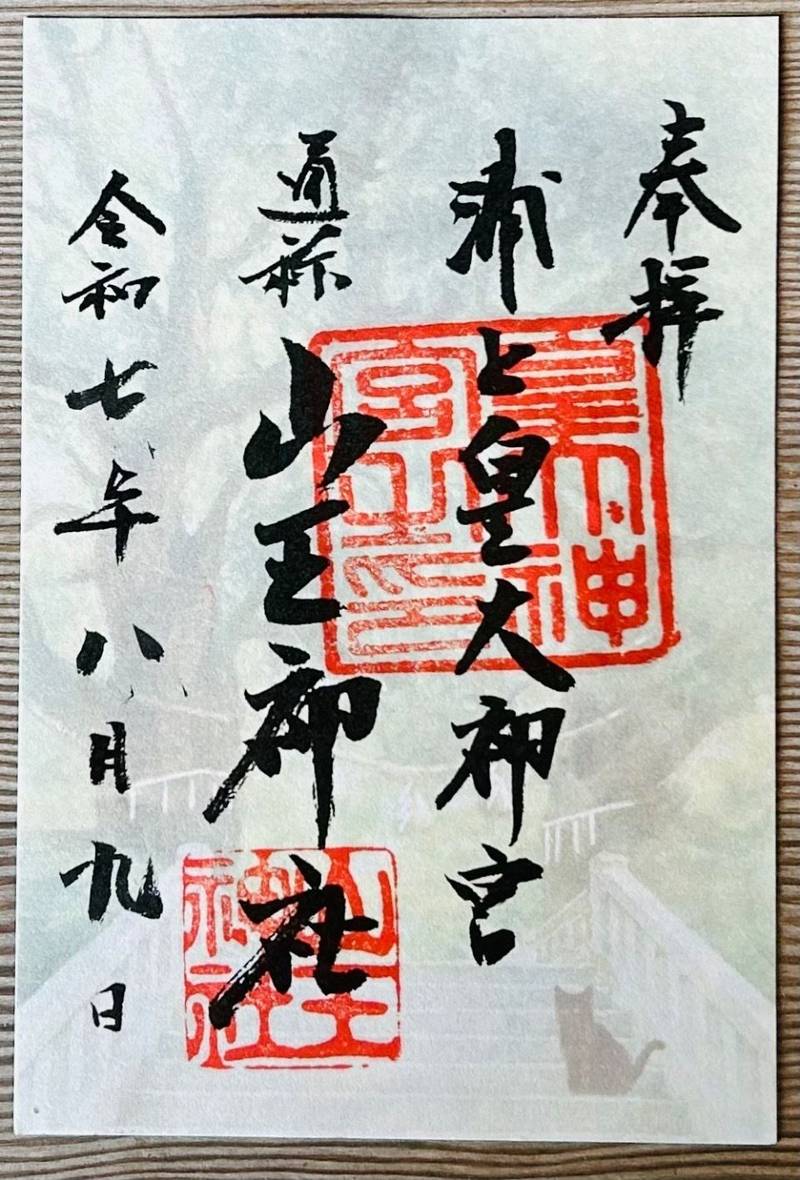 奉拝
浦上皇大神宮
通称
山王神社
令和七年八月九日
皇大神宮之印
山王神社